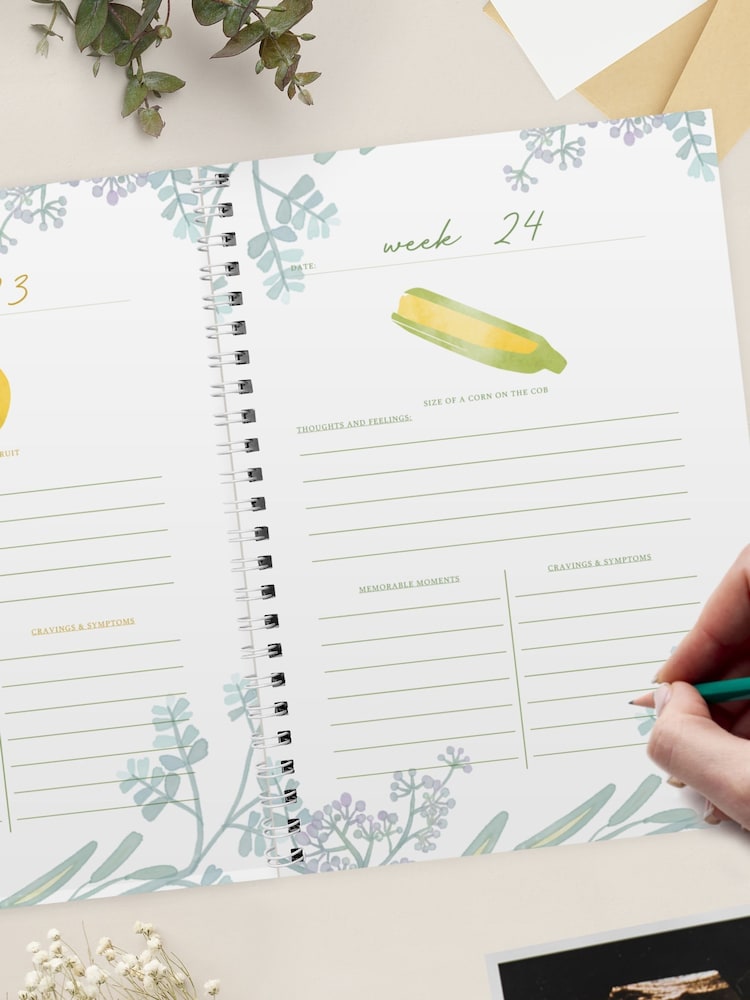 3
RUIT
CRAVINGS & SYMPTOMS
week 24
DATE:
SIZE OF A CORN ON THE COB
THOUGHTS AND FEELINGS:
MEMORABLE MOMENTS
CRAVINGS & SYMPTOMS